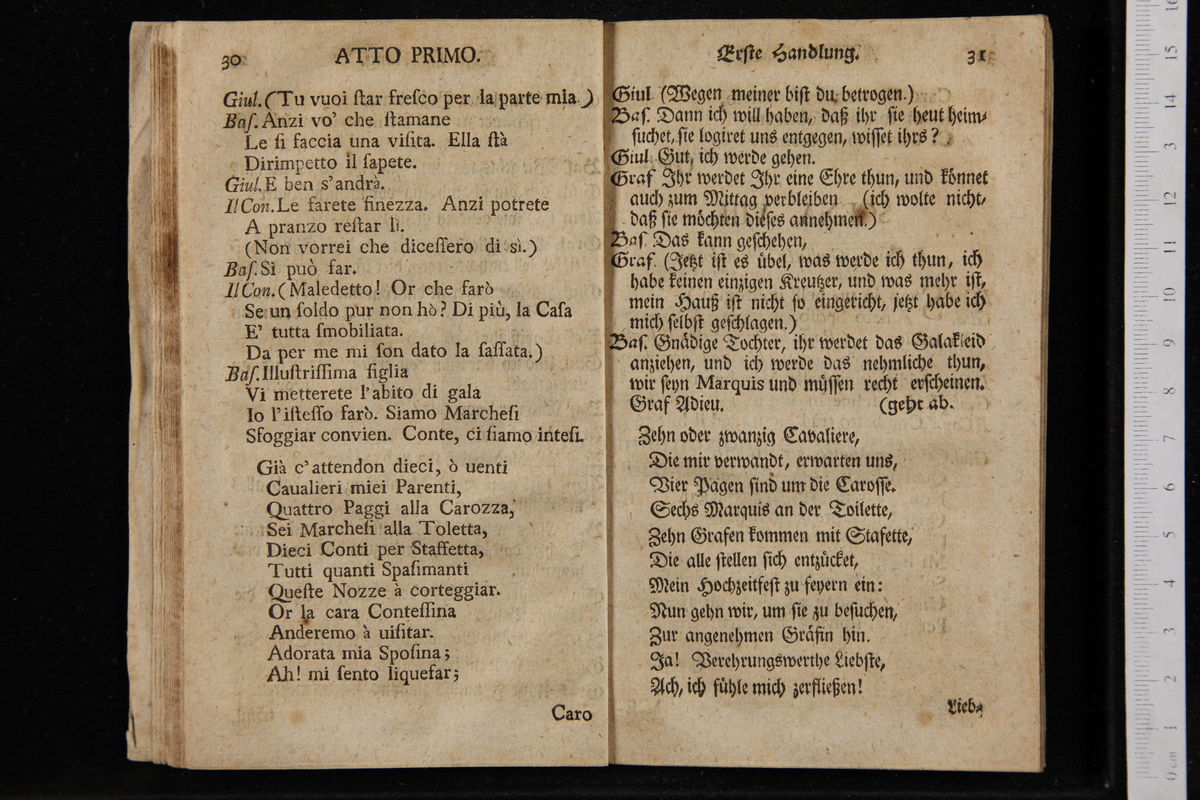 30 ATTO PRIMO.
Giul. (Tu vuoi ſtar freſco per la parte mia.)
Baſ. Anzi vo' che ſtamane
Le ſi faccia una viſita. Ella ſtà
Dirimpetto il ſapete.
Giul. E ben s'andrà.
Il Con. Le farete finezza. Anzi potrete
A pranzo reſtar lì.
(Non vorrei che diceſſero di sì.)
Baſ. Si può far.
Il Con. (Maledetto! Or che farò
Se un ſoldo pur non hò? Di più, la Caſa
E' tutta ſmobiliata.
Da per me mi ſon dato la ſaſſata.)
Baſ. Illuſtriſſima figlia
Vi metterete l'abito di gala
Io l'iſteſſo farò. Siamo Marcheſi
Sfoggiar convien. Conte, ci ſiamo inteſi.
Già c'attendon dieci, ò uenti
Caualieri miei Parenti,
Quattro Paggi alla Carozza,
Sei Marcheſi alla Toletta,
Dieci Conti per Staffetta,
Tutti quanti Spaſimanti
Queſte Nozze à corteggiar.
Or la cara Conteſſina
Anderemo à uiſitar.
Adorata mia Spoſina;
Ah! mi ſento liquefar;
Caro
Erſte Handlung. 31
Giul. (Wegen meiner biſt du betrogen.)
Baſ. Dann ich will haben, daß ihr ſie heut heim-
ſuchet, ſie logiret uns entgegen, wiſſet ihrs?
Giul. Gut, ich werde gehen.
Graf Ihr werdet Ihr eine Ehre thun, und könnet
auch zum Mittag verbleiben (ich wolte nicht,
daß ſie möchten dieſes annehmen.)
Baſ. Das kann geſchehen,
Graf. (Jetzt iſt es übel, was werde ich thun, ich
habe keinen einzigen Kreutzer, und was mehr iſt,
mein Hauß iſt nicht ſo eingericht, jetzt habe ich
mich ſelbſt geſchlagen.)
Baſ. Gnädige Tochter, ihr werdet das Galakleid
anziehen, und ich werde das nehmliche thun,
wir ſeyn Marquis und müſſen recht erſcheinen.
Graf Adieu. (geht ab.
Zehn oder zwanzig Cavaliere,
Die mir verwandt, erwarten uns,
Vier Pagen ſind um die Caroſſe.
Sechs Marquis an der Toilette,
Zehn Grafen kommen mit Stafette,
Die alle ſtellen ſich entzücket,
Mein Hochzeitfeſt zu feyern ein:
Nun gehn wir, um ſie zu beſuchen,
Zur angenehmen Gräfin hin.
Ja! Verehrungswerthe Liebſte,
Ach, ich fühle mich zerfließen!
Lieb-
0 cm 1 2 3 4 5 6 7 8 9 10 11 12 13 14 15 16